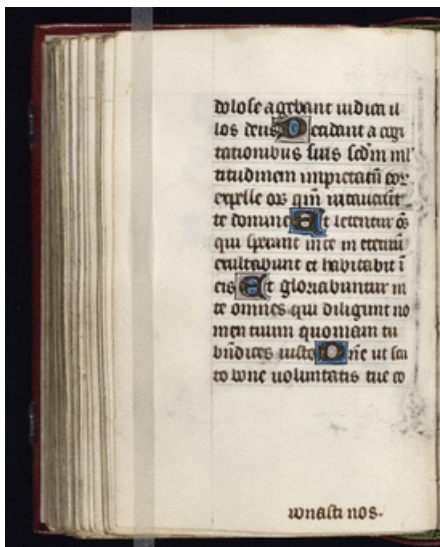 dolose agebant iudica il
los deus Decidant a cogi
tationibus suis scdm ml'
titudinem impietatū eoꝝ
expelle eos qm̄ irritauerūt
te domine Et letentur oēs
qui sperant in te in eternū
exultabunt et habitabit ī
eis Et gloriabuntur in
te omnes qui diligunt no
men tuum quoniam tu
bn̄dices iusto Dn̄e ut scu
to bone uoluntatis tue co
ronasti nos.